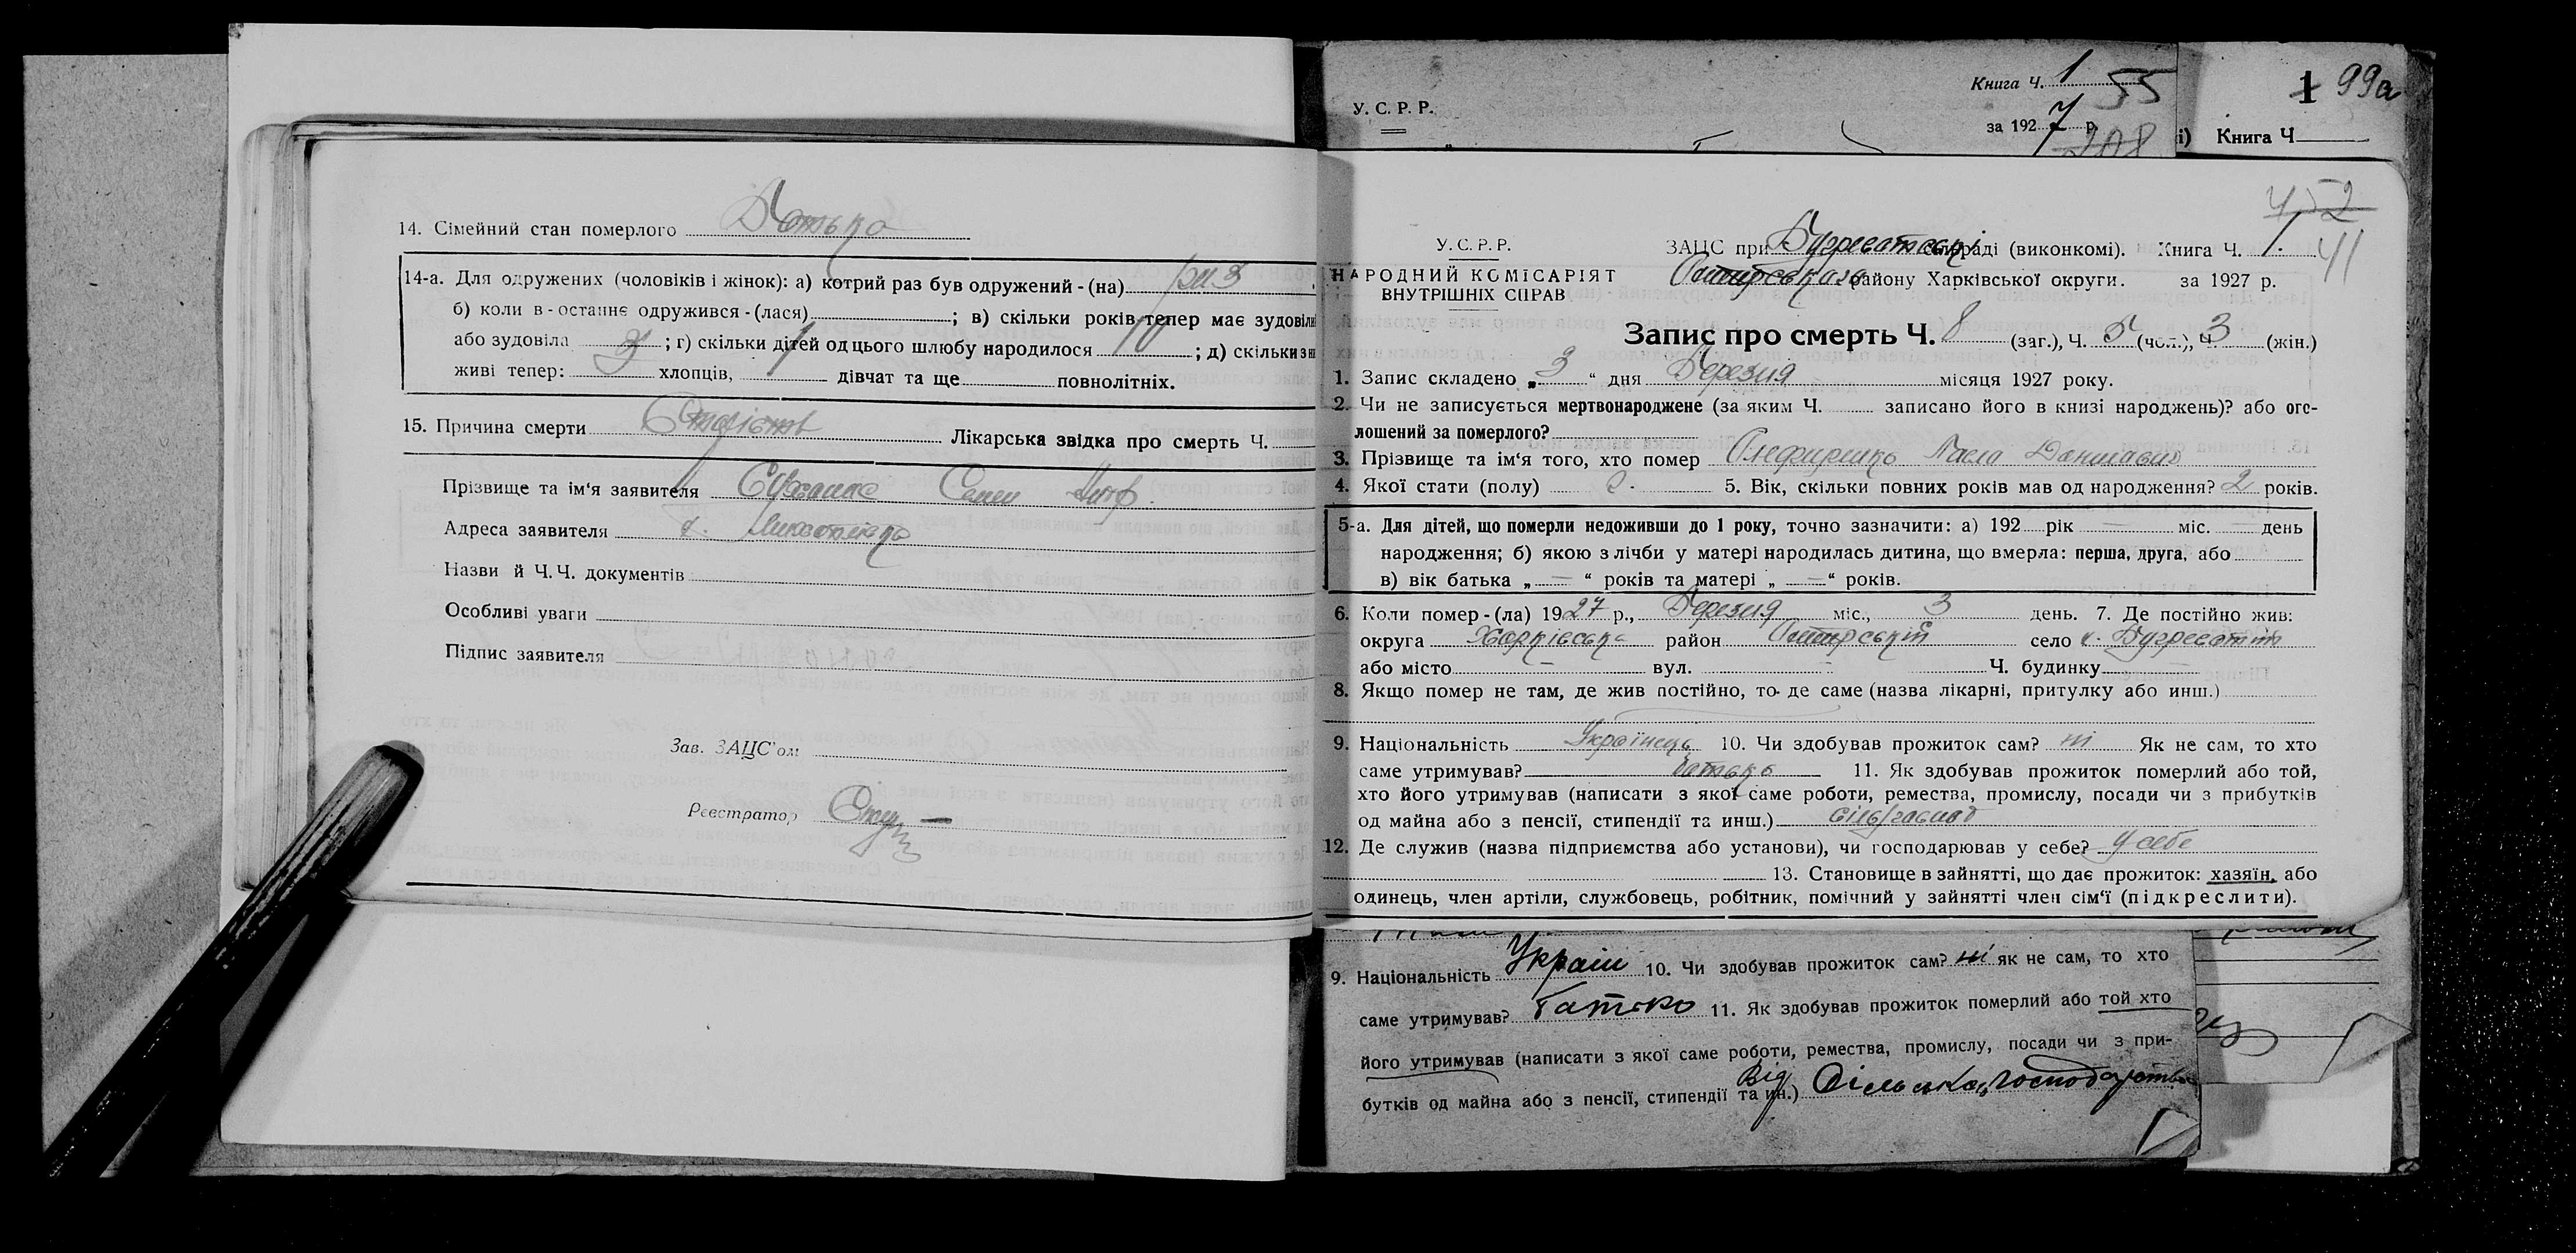 14. Сімейний стан померлого
14-а. Для одружених (чоловіків і жінок): а) котрий раз був одружений - (на) раз
б) коли в - останнє одружився - (лася) ; в) скільки років тепер має зудовіли
або зудовіла 3 ; г) скільки дітей од цього шлюбу народилося 10 ; д) скільки з н
живі тепер: хлопців, 1 дівчат та ще повнолітніх.
15. Причина смерти Старість Лікарська звідка про смерть Ч.
Прізвище та ім'я заявителя Семен Митр.
Адреса заявителя х.
Назви й Ч.Ч. документів
Особливі уваги
Підпис заявителя
Зав. ЗАЦС'ом
Реєстратор
У. С. Р. Р.
Книга Ч. 1 55
за 1927 р.
208
1 99а
і) Книга Ч
452
41
У. С. Р. Р.
НАРОДНИЙ КОМІСАРІЯТ
ВНУТРІШНІХ СПРАВ
ЗАЦС при раді (виконкомі). Книга Ч. 1.
району Харківської округи. за 1927 р.
Запис про смерть Ч. 8 (заг.), Ч. 5 (чол.), Ч. 3 (жін.)
1. Запис складено „ 3 “ дня Березня місяця 1927 року.
2. Чи не записується мертвонароджене (за яким Ч. записано його в книзі народжень)? або ого-
лошений за померлого?
3. Прізвище та ім'я того, хто помер Данилович
4. Якої стати (полу) 5. Вік, скільки повних років мав од народження? 2 років.
5-а. Для дітей, що померли недоживши до 1 року, точно зазначити: а) 192 рік — міс. — день
народження; б) якою з лічби у матері народилась дитина, що вмерла: перша, друга, або
в) вік батька „ — “ років та матері „ — “ років.
6. Коли помер - (ла) 1927 р., Березня міс., 3 день. 7. Де постійно жив:
округа Харківська район село
або місто — вул. Ч. будинку —
8. Якщо помер не там, де жив постійно, то де саме (назва лікарні, притулку або инш.)
9. Національність Українець 10. Чи здобував прожиток сам? ні Як не сам, то хто
саме утримував? батько 11. Як здобував прожиток померлий або той,
хто його утримував (написати з якої саме роботи, ремества, промислу, посади чи з прибутків
од майна або з пенсії, стипендії та инш.) сіль/господ
12. Де служив (назва підприємства або установи), чи господарював у себе? у себе
13. Становище в зайнятті, що дає прожиток: хазяїн, або
одинець, член артіли, службовець, робітник, помічний у зайнятті член сім'ї (підкреслити).
9. Національність Україн 10. Чи здобував прожиток сам? ні як не сам, то хто
саме утримував? батько 11. Як здобував прожиток померлий або той хто
його утримував (написати з якої саме роботи, ремества, промислу, посади чи з при-
бутків од майна або з пенсії, стипендії та ин.) Від Сільська господарства